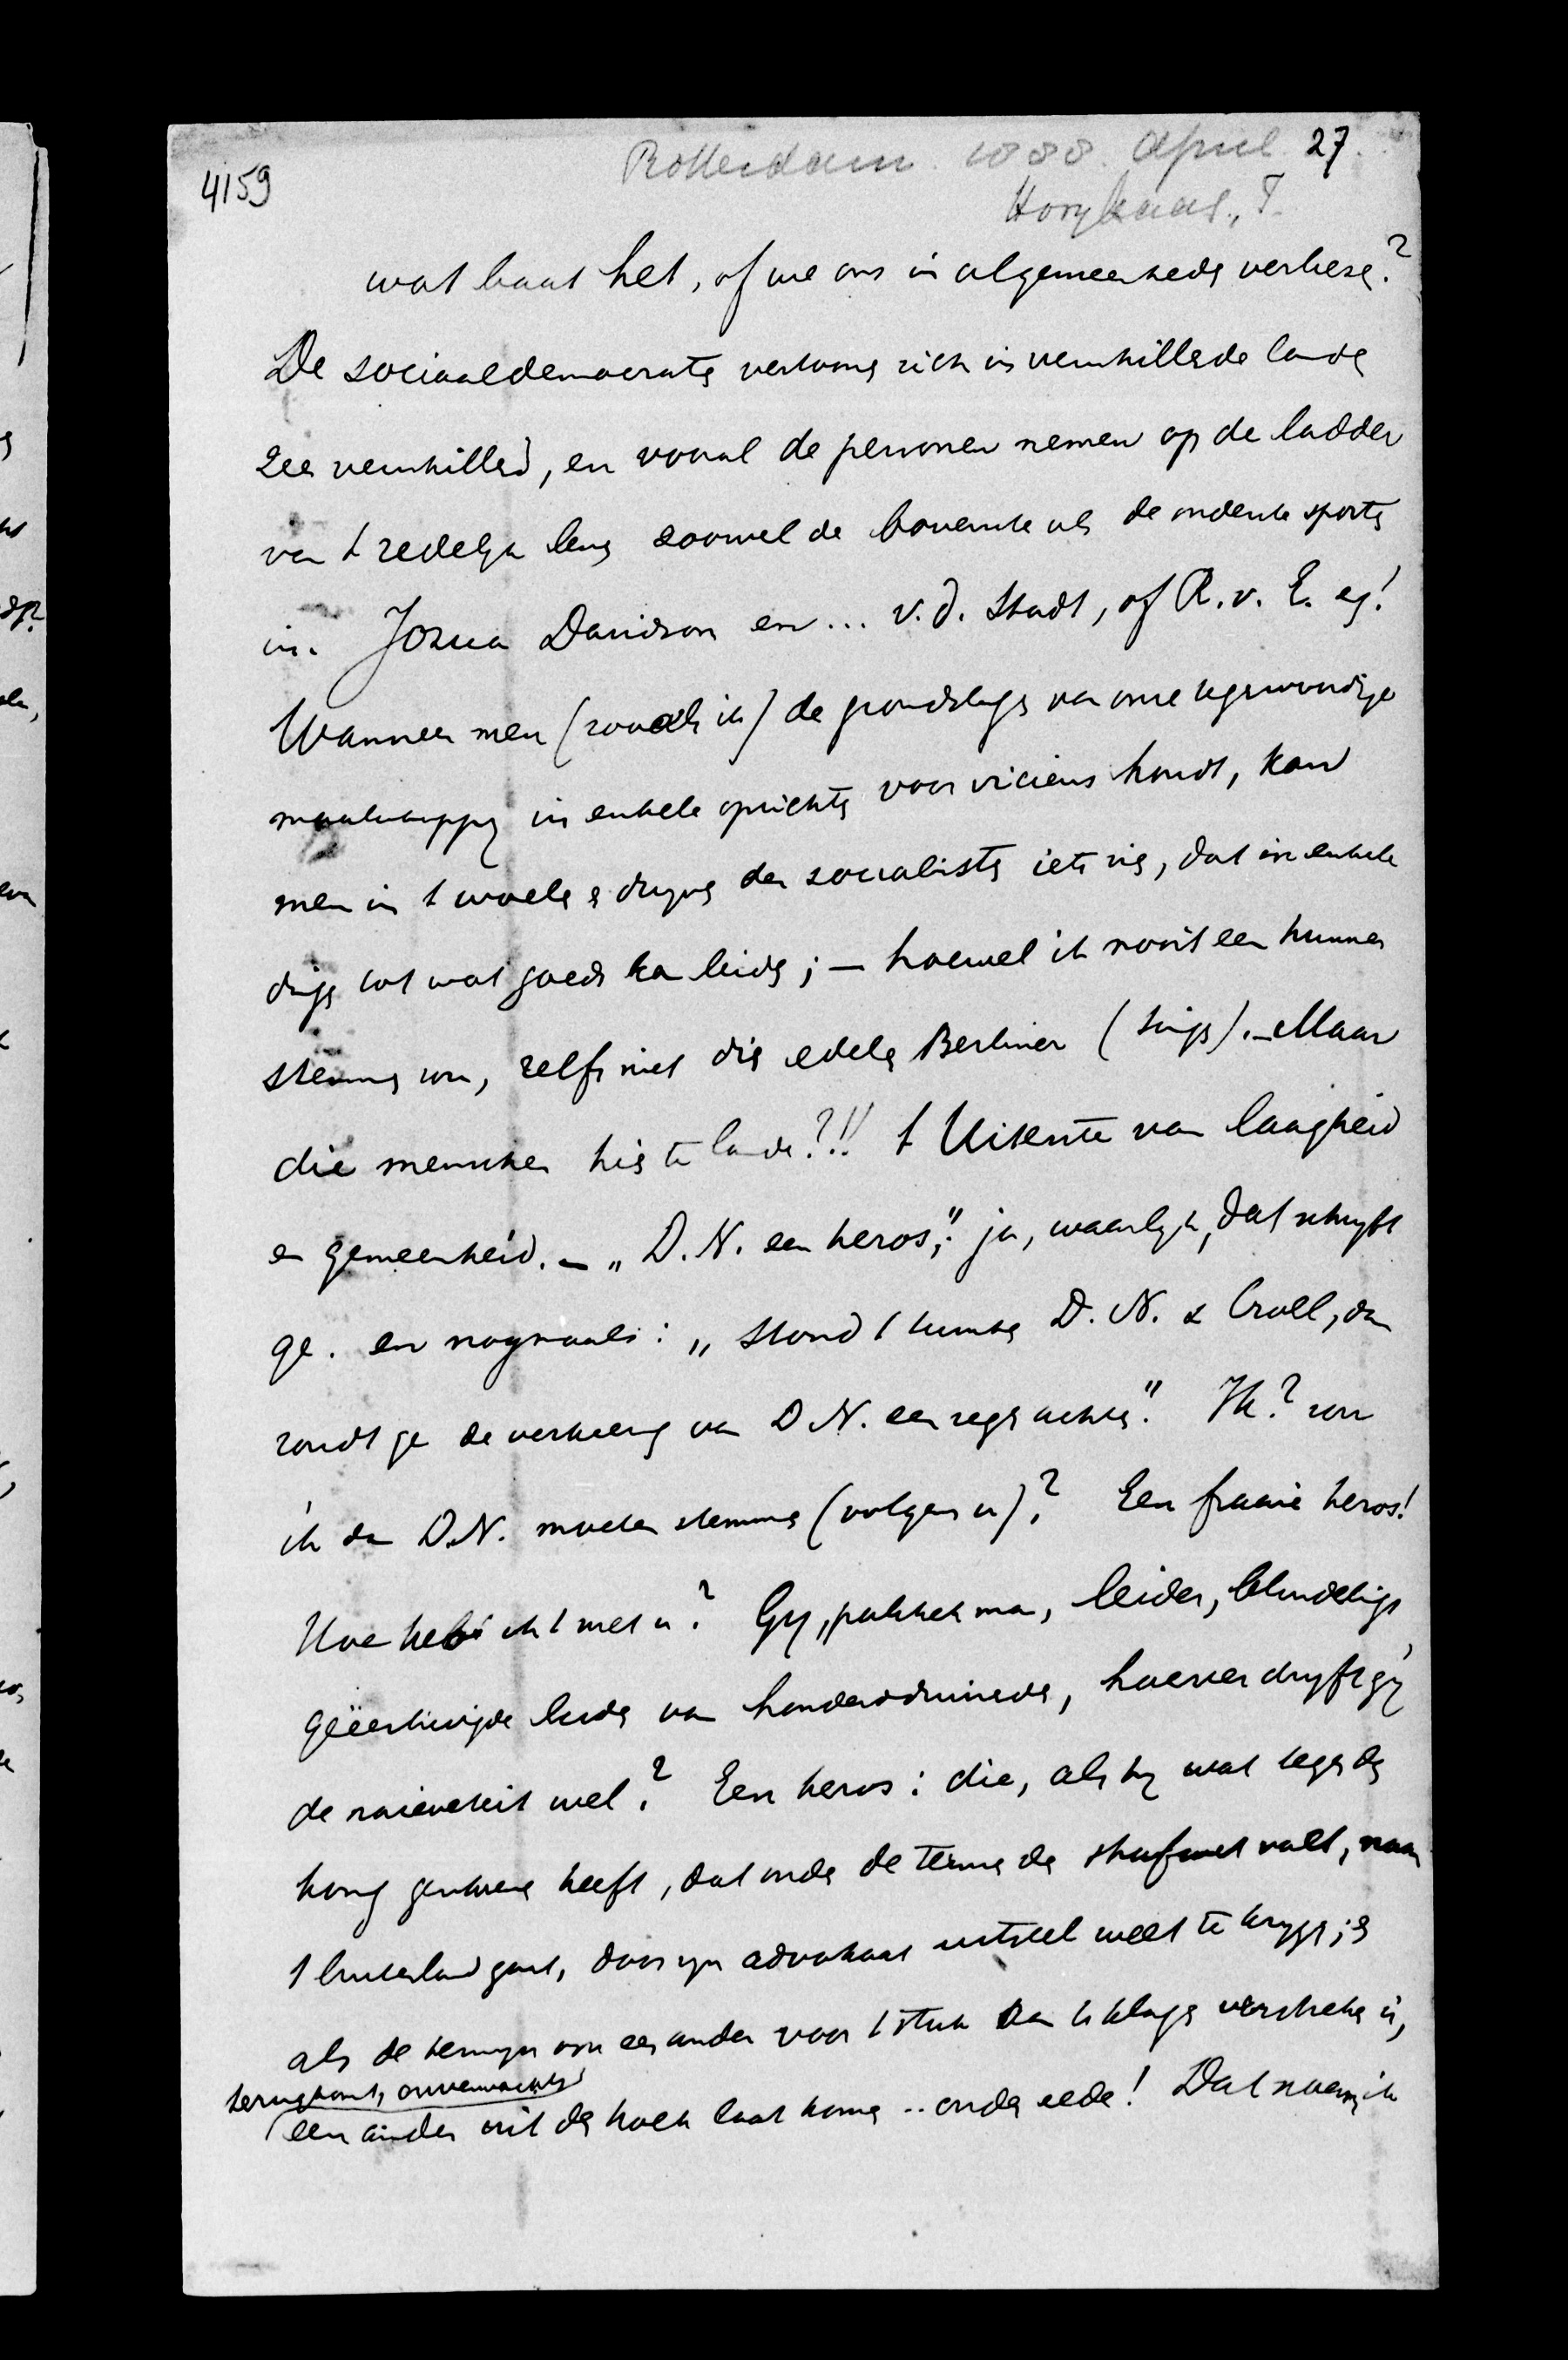 4159
Rotterdam 1888. April 27.
Hoogkaas, T.
wat baat het, of we ons in algemeenheden verliezen?
De sociaaldemocraten vertoonen zich in verschillende landen
zeer verschillend, en vooral de personen nemen op de ladder
van 't zedelijk leven zoowel de bovenste als de onderste sporten
in. Jozua Davidson en ... v.d. Stadt, of R. v. E. en!
Wanneer men (zooals ik) de grondslagen van onze tegenwoordige
maatschappij in enkele opzichten voor vicieus houdt, kan
men in 't woelen en dryven der socialisten iets zien, dat in enkele
dingen tot wat goeds kan leiden; — hoewel ik nooit een hunner
stemmen zou, zelfs niet dien edelen Berliner (Singer). — Maar
die menschen hier te lande?!! 't Uiterste van laagheid
en gemeenheid. — „D.N. een heros," ja, waarlyk, dat schryft
ge. en nogmaals: „Stond 't tusschen D.N. & Croll, dan
zoudt ge de verkiezing van D.N. een zegen achten." Ik? zou
ik dan D.N. moeten stemmen (volgens u)? Een fraaie heros!
Hoe heb ik 't met u? Gy, , leider, blindelings
geëerbiedigde leider van honderdduizenden, hoever dryft gy
de naieveteit wel? Een heros: die, als hy wat tegen den
koning geschreven heeft, dat onder de termen der strafwet valt, naar
't buitenland gaat, door zyn advokaat uitstel weet te krygen; en
als de termyn om een ander voor 't stuk aan te klagen verstreken is,
terugkomt, onverwachts
een ander uit den hoek laat komen .. onder eede! Dat noem ik